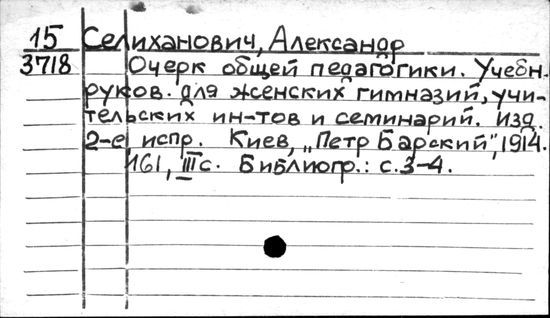 15 Селиханович, Александр
3718 Очерк общей педагогики. Учебн.
руков. для женских гимназий, учи-
тельских ин-тов и семинарий. Изд.
2-е, испр. Киев, „Петр Барский", 1914.
161, III с. Библиогр.: с. 3-4.